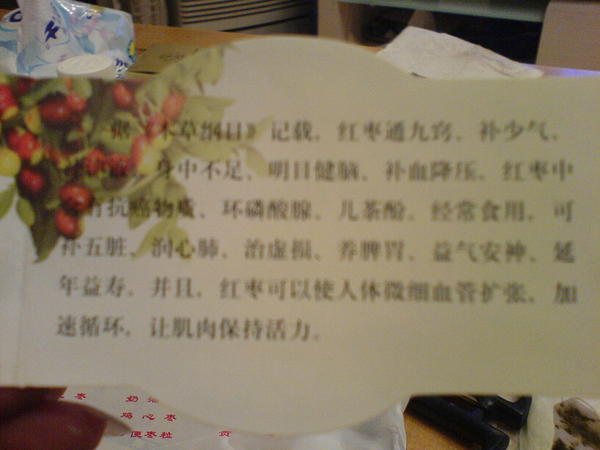 据《本草纲目》记载，红枣通九窍、补少气、
身中不足、明目健脑、补血降压，红枣中
含有抗癌物质、环磷酸腺、儿茶酚，经常食用，可
补五脏、润心肺、治虚损、养脾胃、益气安神、延
年益寿，并且，红枣可以使人体微细血管扩张，加
速循环，让肌肉保持活力。
枣 奶
鸡心枣
便枣粒